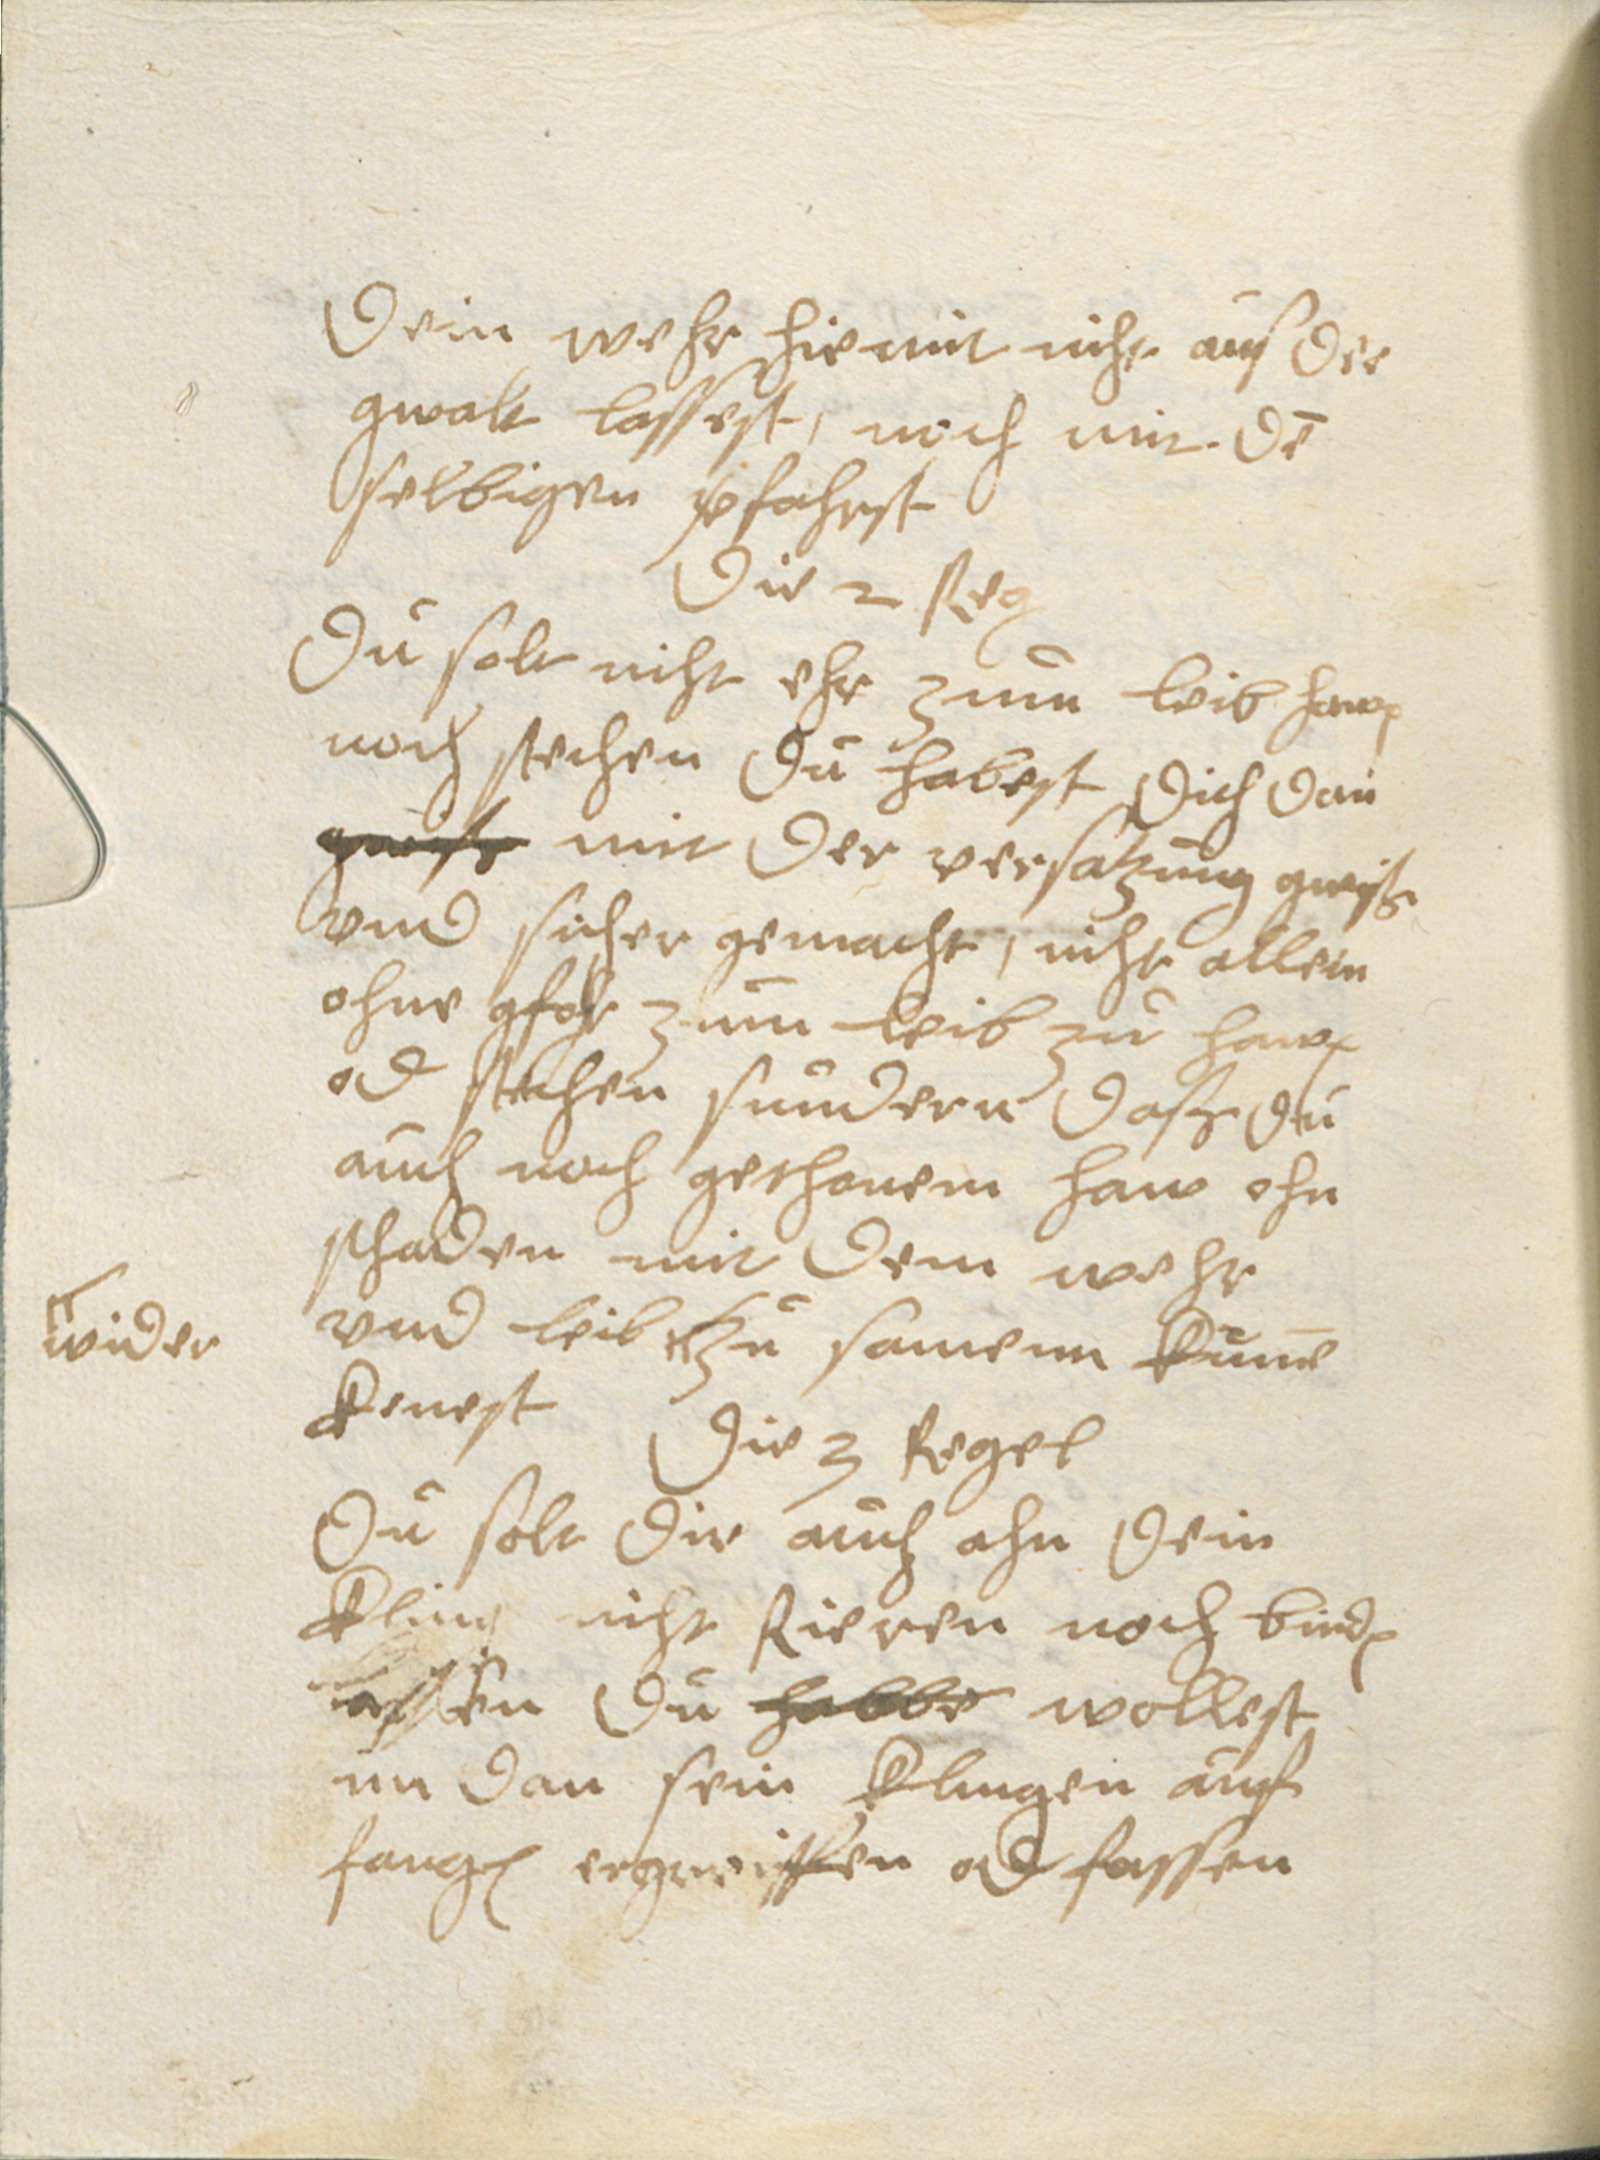 Dein wehr hiemit nicht auß der
gwalt lassest, noch mit dē
selbigen vfahrst
Die 2 Reg
Du solt nicht ehr zum leib hawen
noch stechen du habest dich dan
gwiß mit der versatzung gwiß
vnd sicher gemacht, nicht allein
ohne gfahr zum leib zu hawen
od stechen sundern daß du
auch nach gethonem haw ohn
schaden mit dem wehr
wider
vnd leib zu samenn kume
kenest
Die 3 Regel
Du solt dir auch ahn dein
kling nicht Rieren noch binden
lassen du habbe wollest
im dan sein klingen auf
fangen ergreiffen od fassen